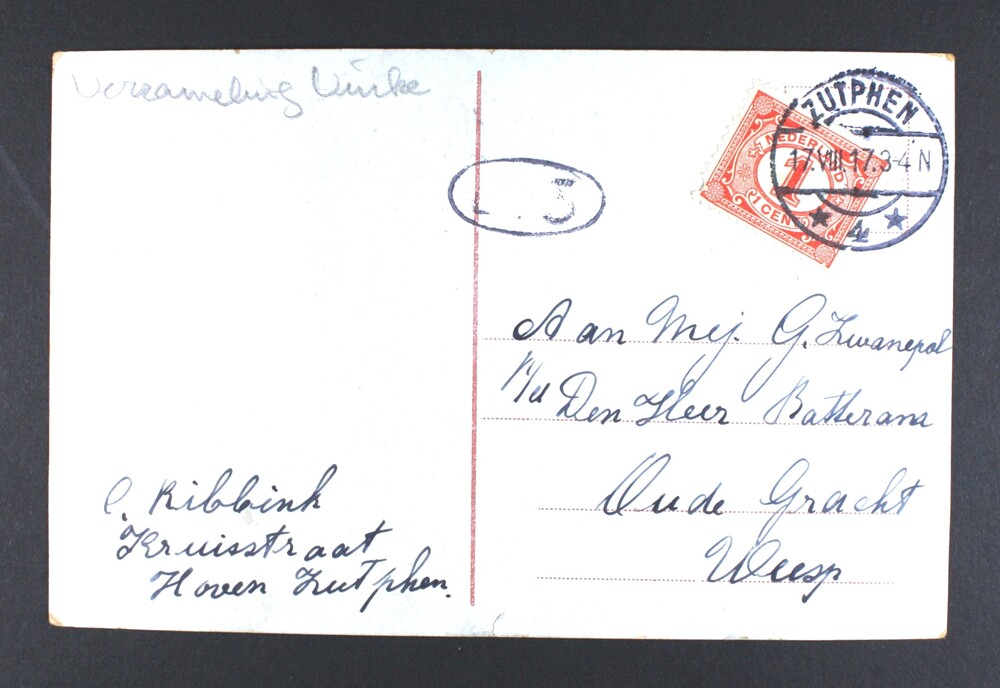 Verzameling Vinke
ZUTPHEN
17.VIII.17.3-4 N
4
NEDERLAND
1
1 CENT
3
Aan Mej. G. Zwanepol
p/a Den Heer Batterana
Oude Gracht
Weesp
C. Ribbink
Kruisstraat
Hoven Zutphen.